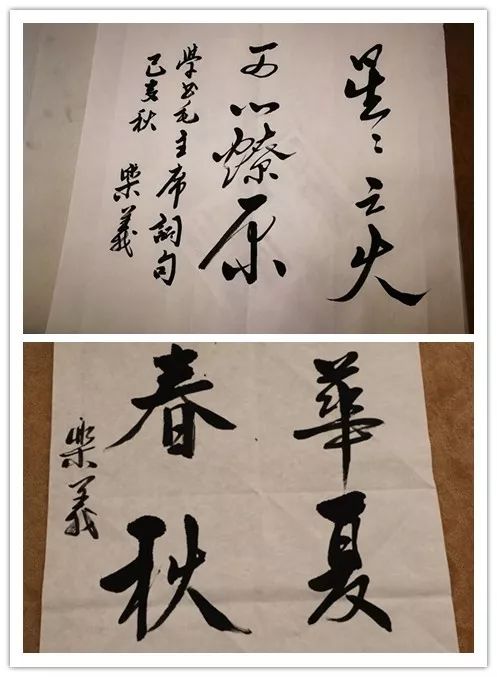 星〻之火
可以燎原
學書毛主席詞句
己亥秋 樂義
華夏
春秋
樂義